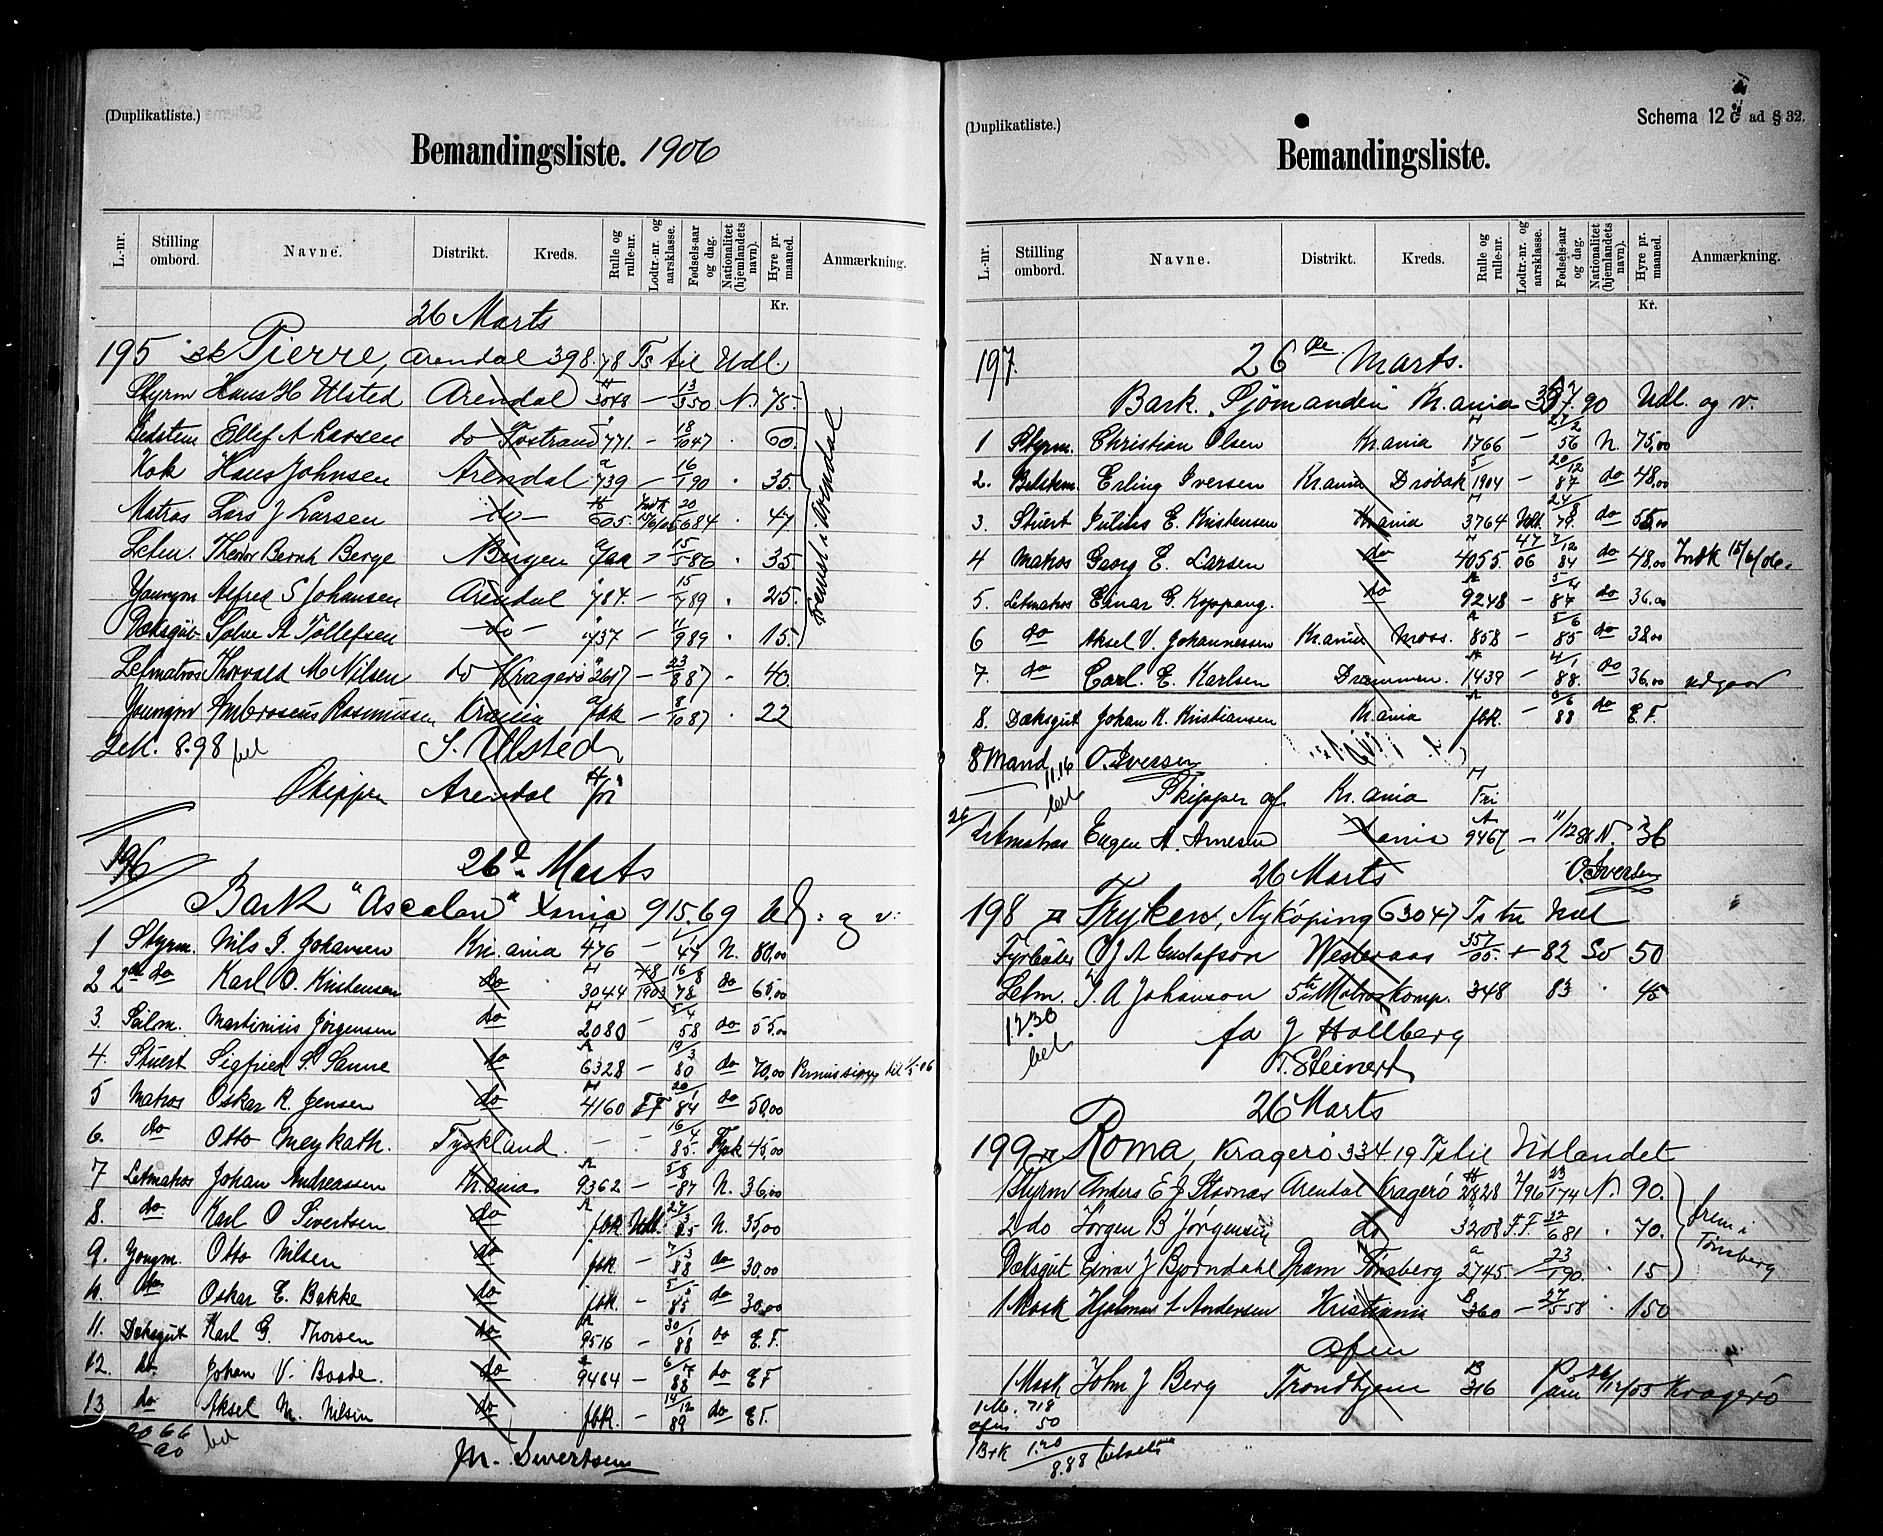 (Duplikatliste.)
Bemandingsliste. 1906
L.-nr. Stilling ombord. Navne. Distrikt. Kreds. Rulle og rulle-nr. Lodtr.-nr. og aarsklasse. Fødsels-aar og dag. Nationalitet (hjemlandets navn). Hyre pr. maaned. Anmærkning.
Kr.
26 Marts
195 Pierre, Arendal 398.78 Ts til Udl.
Styrm Hans H Ulsted Arendal 3048 — 13/3 50 N. 75.
Ellef A Larsen do Tostrand 771. — 18/10 47 60.
Kok Hans Johnsen Arendal 739 — 16/1 90 35.
Matros Lars J Larsen — do — 605. 20/6 84 47
Letm. Theodor Bernh Berge Bergen 15/5 86 35
Youngm Alfred S Johansen Arendal 784. — 15/7 89 25.
Dæksgut Solve A Tollefsen — do — 737 — 11/9 89 15.
Fremst i Arendal
Letmatros Thorvald M Nilsen do Kragerø 2617 — 23/8 87 40.
Youngm Ambrosius Rasmussen Krania fbk — 8/10 87 22
8.98 bet S. Ulsted
Skipper Arendal
196 26d. Marts
Bark "Ascalon" Xania 915.69 Udl: og v:
1 Styrm. Nils J. Johansen Kr.ania 476 — 47 N. 80,00
2 2den do Karl O. Kristensen do 3044 1903 16/8 78 do 65,00
3. Sailm. Martinius Jørgensen do 2080 — 5/4 58 do 55,00
4. Stuert Sigfried S. Sanne do 6328 — 19/3 80 do 70,00
5 Matros Oskar R. Jensen do 4160 FF 20/1 84 do 50,00
6. do Otto Meykath. Tyskland — - 16/4 85. Tysk 45,00
7 Letmatros Johan Andreassen Kr.ania 9362 — 87 N. 36,00
8. do Karl O Sivertsen do fbk. Udl. 27/3 85 N. 35,00
9. Yongm. Otto Nilsen do fbk. — 7/3 88 do 30,00
do Oskar E. Bakke do fbk. — 85 do 30,00
11. Dæksgut Karl G. Thorsen do 9516 — 30/1 88 do E.F.
12. do. Johan V. Baade. do 9464 — 88 do E F
13 do Aksel M. Nilsen do fbk. — 14/12 89 do E F.
bet
M. Sivertsen
(Duplikatliste.) Schema 12 c ad § 32.
Bemandingsliste.
L.-nr. Stilling ombord. Navne. Distrikt. Kreds. Rulle og rulle-nr. Lodtr.-nr. og aarsklasse. Fødsels-aar og dag. Nationalitet (hjemlandets navn). Hyre pr. maaned. Anmærkning.
Kr.
197. 26de Marts.
Bark. "Sjømanden" Kr.ania 90 Udl. og v.
1 Styrm. Christian Olsen Kr.ania 1766 — 56 N. 75,00
2. Erling Iversen Kr.ania Drøbak 1904 — 20/12 87 do 48,00
3. Stuert Julius E. Kristensen Kr.ania 3764 Udl. 24/8 79. do 55,00
4 Matros Georg E. Larsen do 4055. 47/06 7/12 84 do 48,00 Indk 15/6/06.
5. Letmatros Einar G. Koppang. do 9248 — 87 do 36.00
6 do Aksel V. Johannessen Kr.ania Moss. 858 — 5/6 85 do 38,00
7. do Carl. E. Karlsen Drammen. 1439 — 4/1 88. do 36,00 udgaar
8. Dæksgut Johan K. Kristiansen Kr.ania fbk. — 88 do E. F.
8 Mand 11.16 bet O. Iversen
Skipper af Kr.ania
26/ Letmatros Eugen A. Arnesen Xania 9467 — 11/12 86 N. 36
26 Marts O. Iversen
198 Fryken, Nykøping 630 47 Ts til Udl
Fyrbøter O J A Gustafson Westeraas 357/05. + 82 Sv 50
Letm. J. A Johanson 5te Matroskomp. 348 83 45
12.30 bet fa J Hallberg
T. Steinert
26 Marts
199 Roma, Kragerø 334 19 Ts til Udlandet
1 Styrm Anders E J Stavnæs Arendal Kragerø 2828 7/96 23/1 74 N. 90.
2 do Jørgen B Jørgensen do 3208 F.F. 6 81 70.
Dæksgut Einar J Bjørndahl Dram Tønsberg 2745. 23/1 90. 15
frem i Tønsberg
1 Mask Hjalmar A Andersen Kristiania 360 — 27/5 58 150
afm
1 Mask John J Berg Trondhjem 316 Paam 26/12/05 Kragerø
1 M. 718
afm 50
B+K 1.20
8.88 betalt